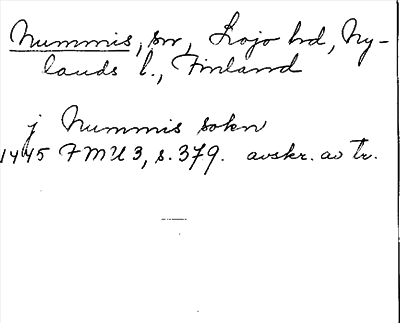 Nummis, sn, Lojo hd, Ny-
lands l., Finland
j Nummis sokn
1445 FMU 3, s. 379. avskr. av tr.